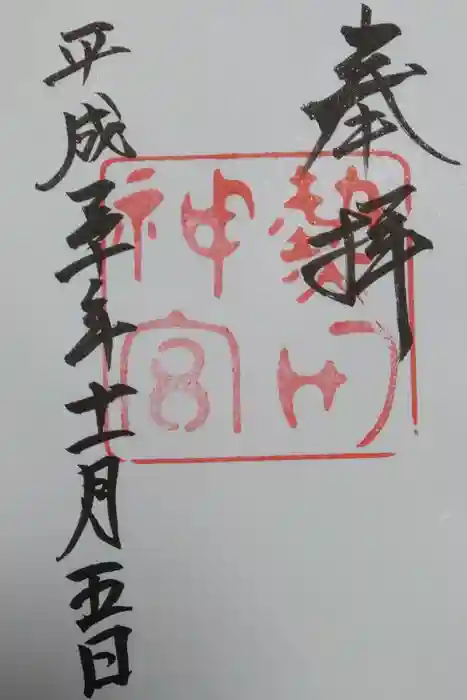 奉拝
神宮
平成三十年十一月五日